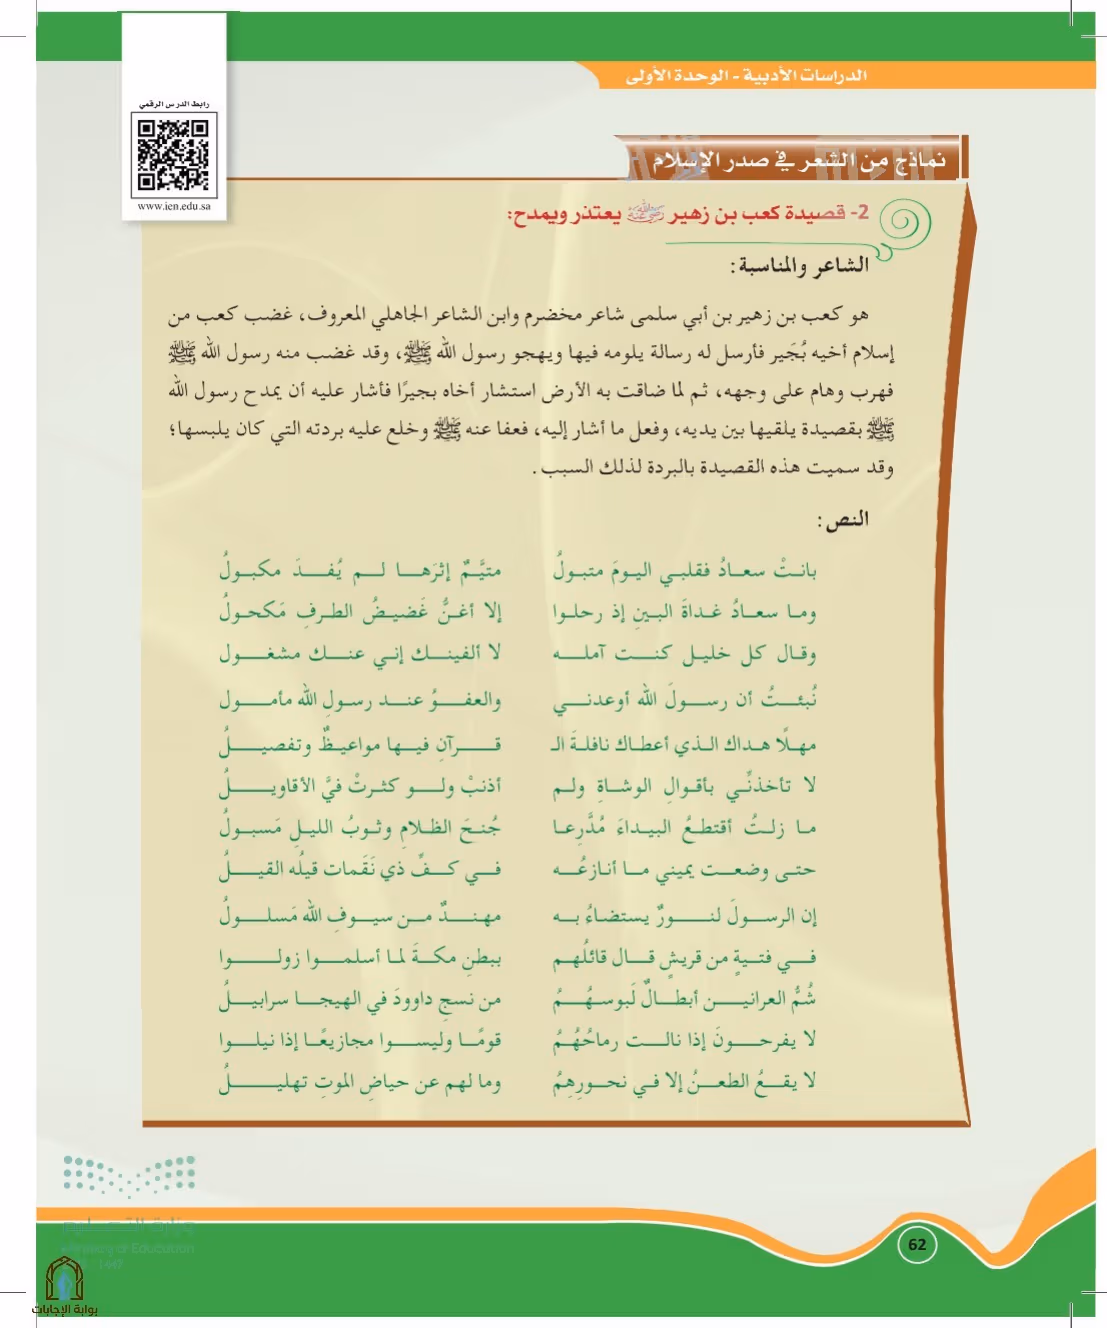 الدراسات الأدبية - الوحدة الأولى
رابط الدرس الرقمي
www.ien.edu.sa
نماذج من الشعر في صدر الإسلام
2- قصيدة كعب بن زهير رضي الله عنه يعتذر ويمدح:
الشاعر والمناسبة:
هو كعب بن زهير بن أبي سلمى شاعر مخضرم وابن الشاعر الجاهلي المعروف، غضب كعب من
إسلام أخيه بُجَير فأرسل له رسالة يلومه فيها ويهجو رسول الله ﷺ، وقد غضب منه رسول الله ﷺ
فهرب وهام على وجهه، ثم لما ضاقت به الأرض استشار أخاه بجيرًا فأشار عليه أن يمدح رسول الله
ﷺ بقصيدة يلقيها بين يديه، وفعل ما أشار إليه، فعفا عنه ﷺ وخلع عليه بردته التي كان يلبسها؛
وقد سميت هذه القصيدة بالبردة لذلك السبب.
النص:
بانتْ سعادُ فقلبي اليومَ متبولُ متيَّمٌ إثرَها لم يُفدَ مكبولُ
وما سعادُ غداةَ البينِ إذ رحلوا إلا أغنُّ غَضيضُ الطرفِ مَكحولُ
وقال كل خليل كنت آمله لا ألفينك إني عنك مشغول
نُبئتُ أن رسولَ الله أوعدني والعفوُ عند رسولِ الله مأمول
مهلًا هداك الذي أعطاك نافلةَ الـ قرآنِ فيها مواعيظٌ وتفصيلُ
لا تأخذنِّي بأقوالِ الوشاةِ ولم أذنبْ ولو كثرتْ فيَّ الأقاويلُ
ما زلتُ أقتطعُ البيداءَ مُدَّرِعا جُنحَ الظلامِ وثوبُ الليلِ مَسبولُ
حتى وضعت يميني ما أنازعُه في كفِّ ذي نَقَمات قيلُه القيلُ
إن الرسولَ لنورٌ يستضاءُ به مهندٌ من سيوفِ الله مَسلولُ
في فتيةٍ من قريشٍ قال قائلُهم ببطنِ مكةَ لما أسلموا زولوا
شُمُّ العرانين أبطالٌ لَبوسهُمُ من نسجِ داوودَ في الهيجا سرابيلُ
لا يفرحونَ إذا نالت رماحُهُمُ قومًا وليسوا مجازيعًا إذا نيلوا
لا يقعُ الطعنُ إلا في نحورِهِمُ وما لهم عن حياضِ الموتِ تهليلُ
وزارة التعليم
Ministry of Education
1447
62
بوابة الإجابات